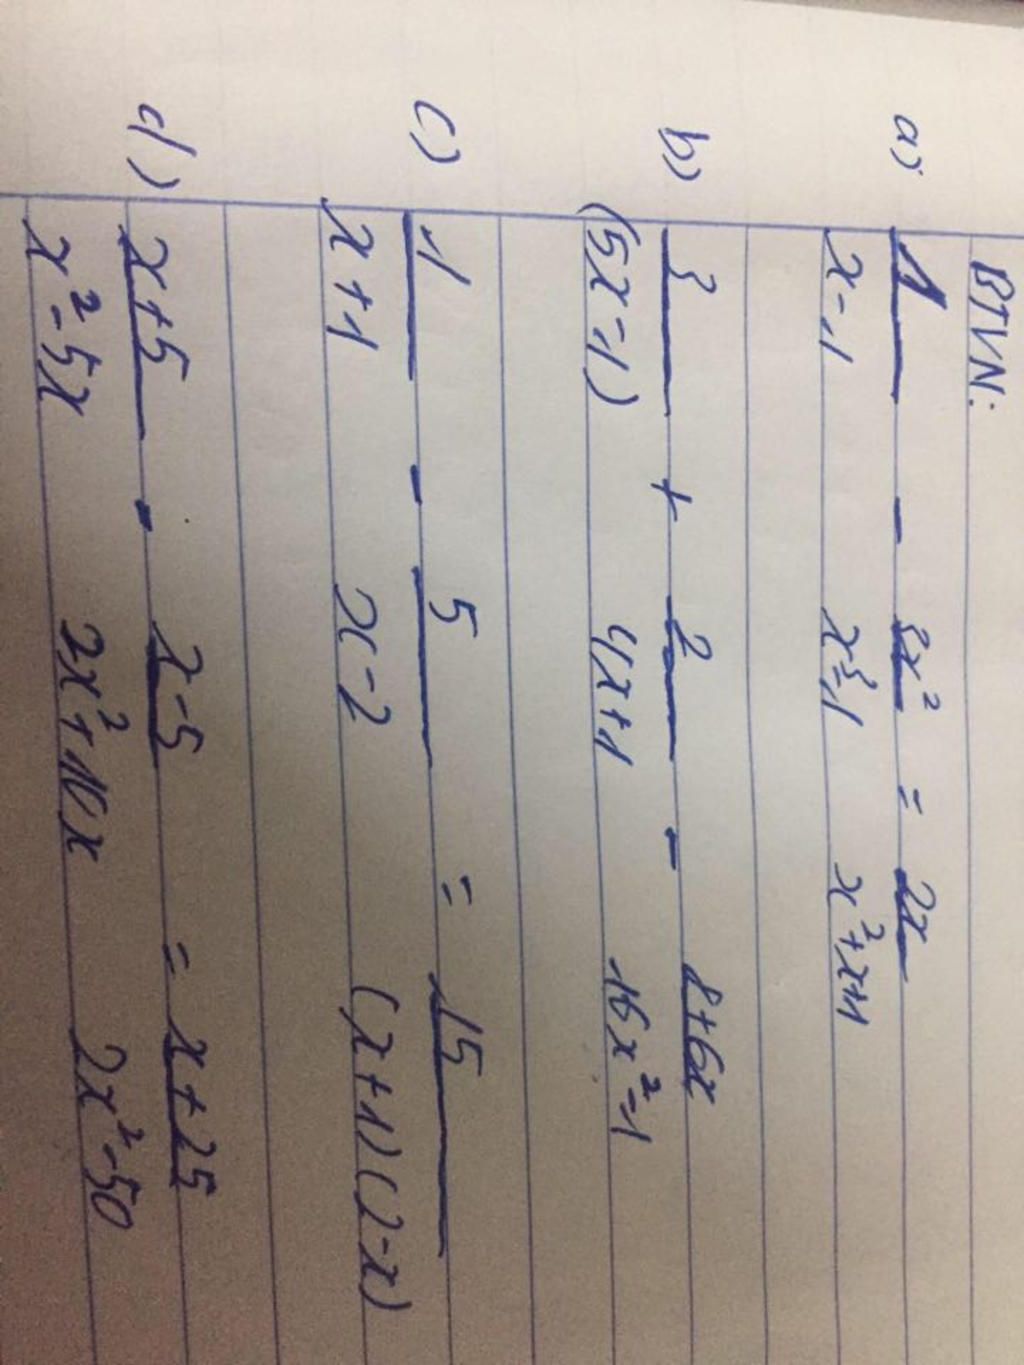 BTVN:
a) 1/(x-1) - 3x²/(x³-1) = 2x/(x²+x+1)
b) 3/(5x-1) + 2/(4x+1) - 8+6x/(16x²-1)
c) 1/(x+1) - 5/(x-2) = 15/((x+1)(2-x))
d) x+5/(x²-5x) - x-5/(2x²+10x) = x+25/(2x²-50)